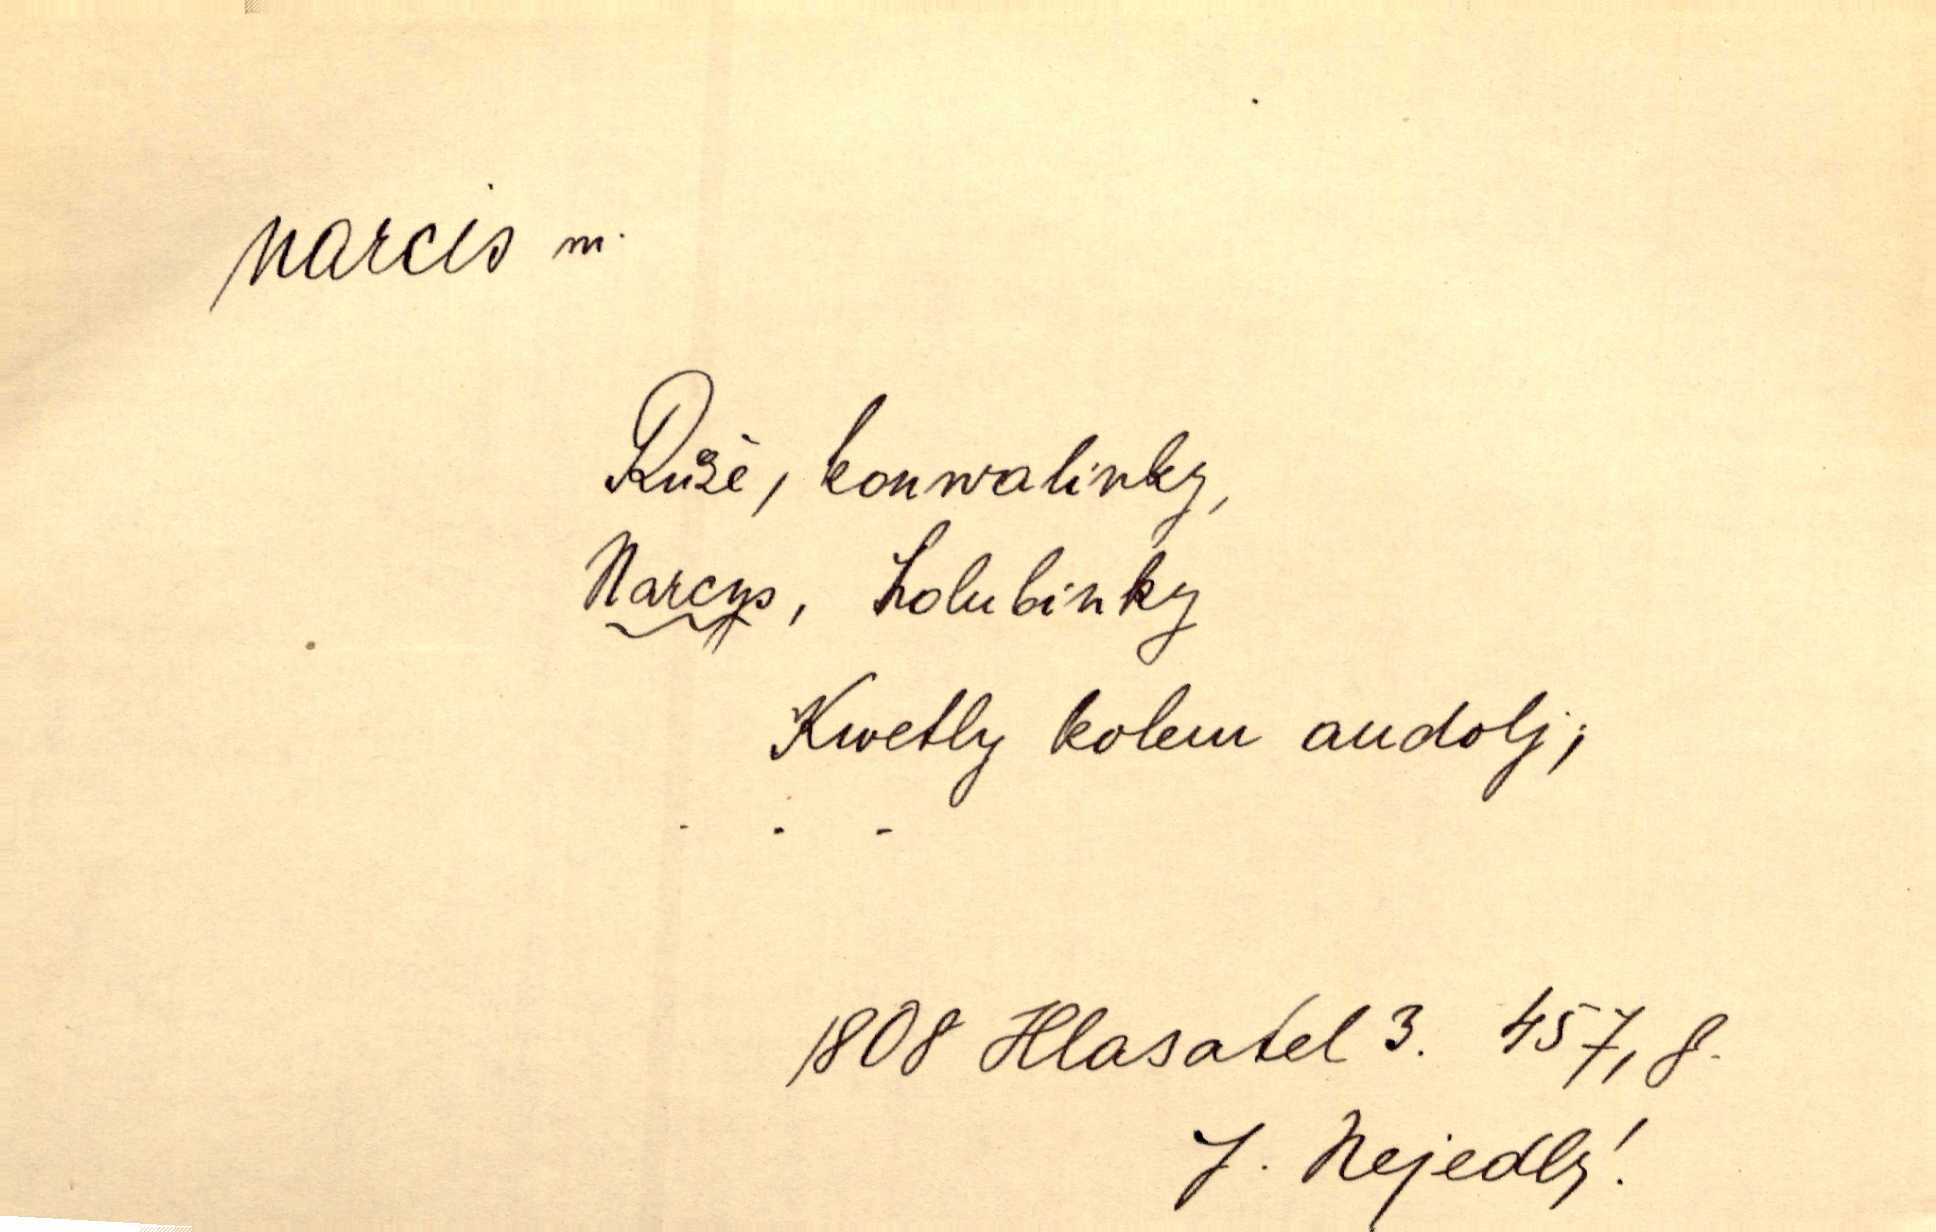 narcis m.
Růžě, konwalinky,
Narcys, holubinky
Kwetly kolem audolj;
. . -
1808 Hlasatel 3. 457, 8.
J. Nejedlý.